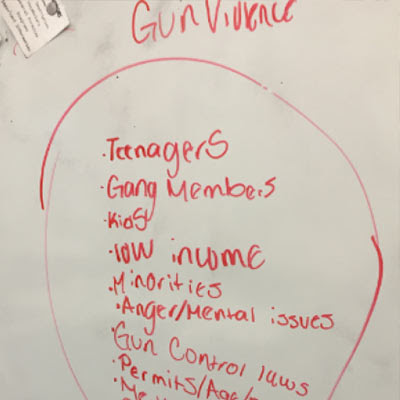 Gun Violence
·Teenagers
·Gang Members
·Kids
·low income
·Minorities
·Anger/Mental issues
·Gun Control laws
·Permits/Age/